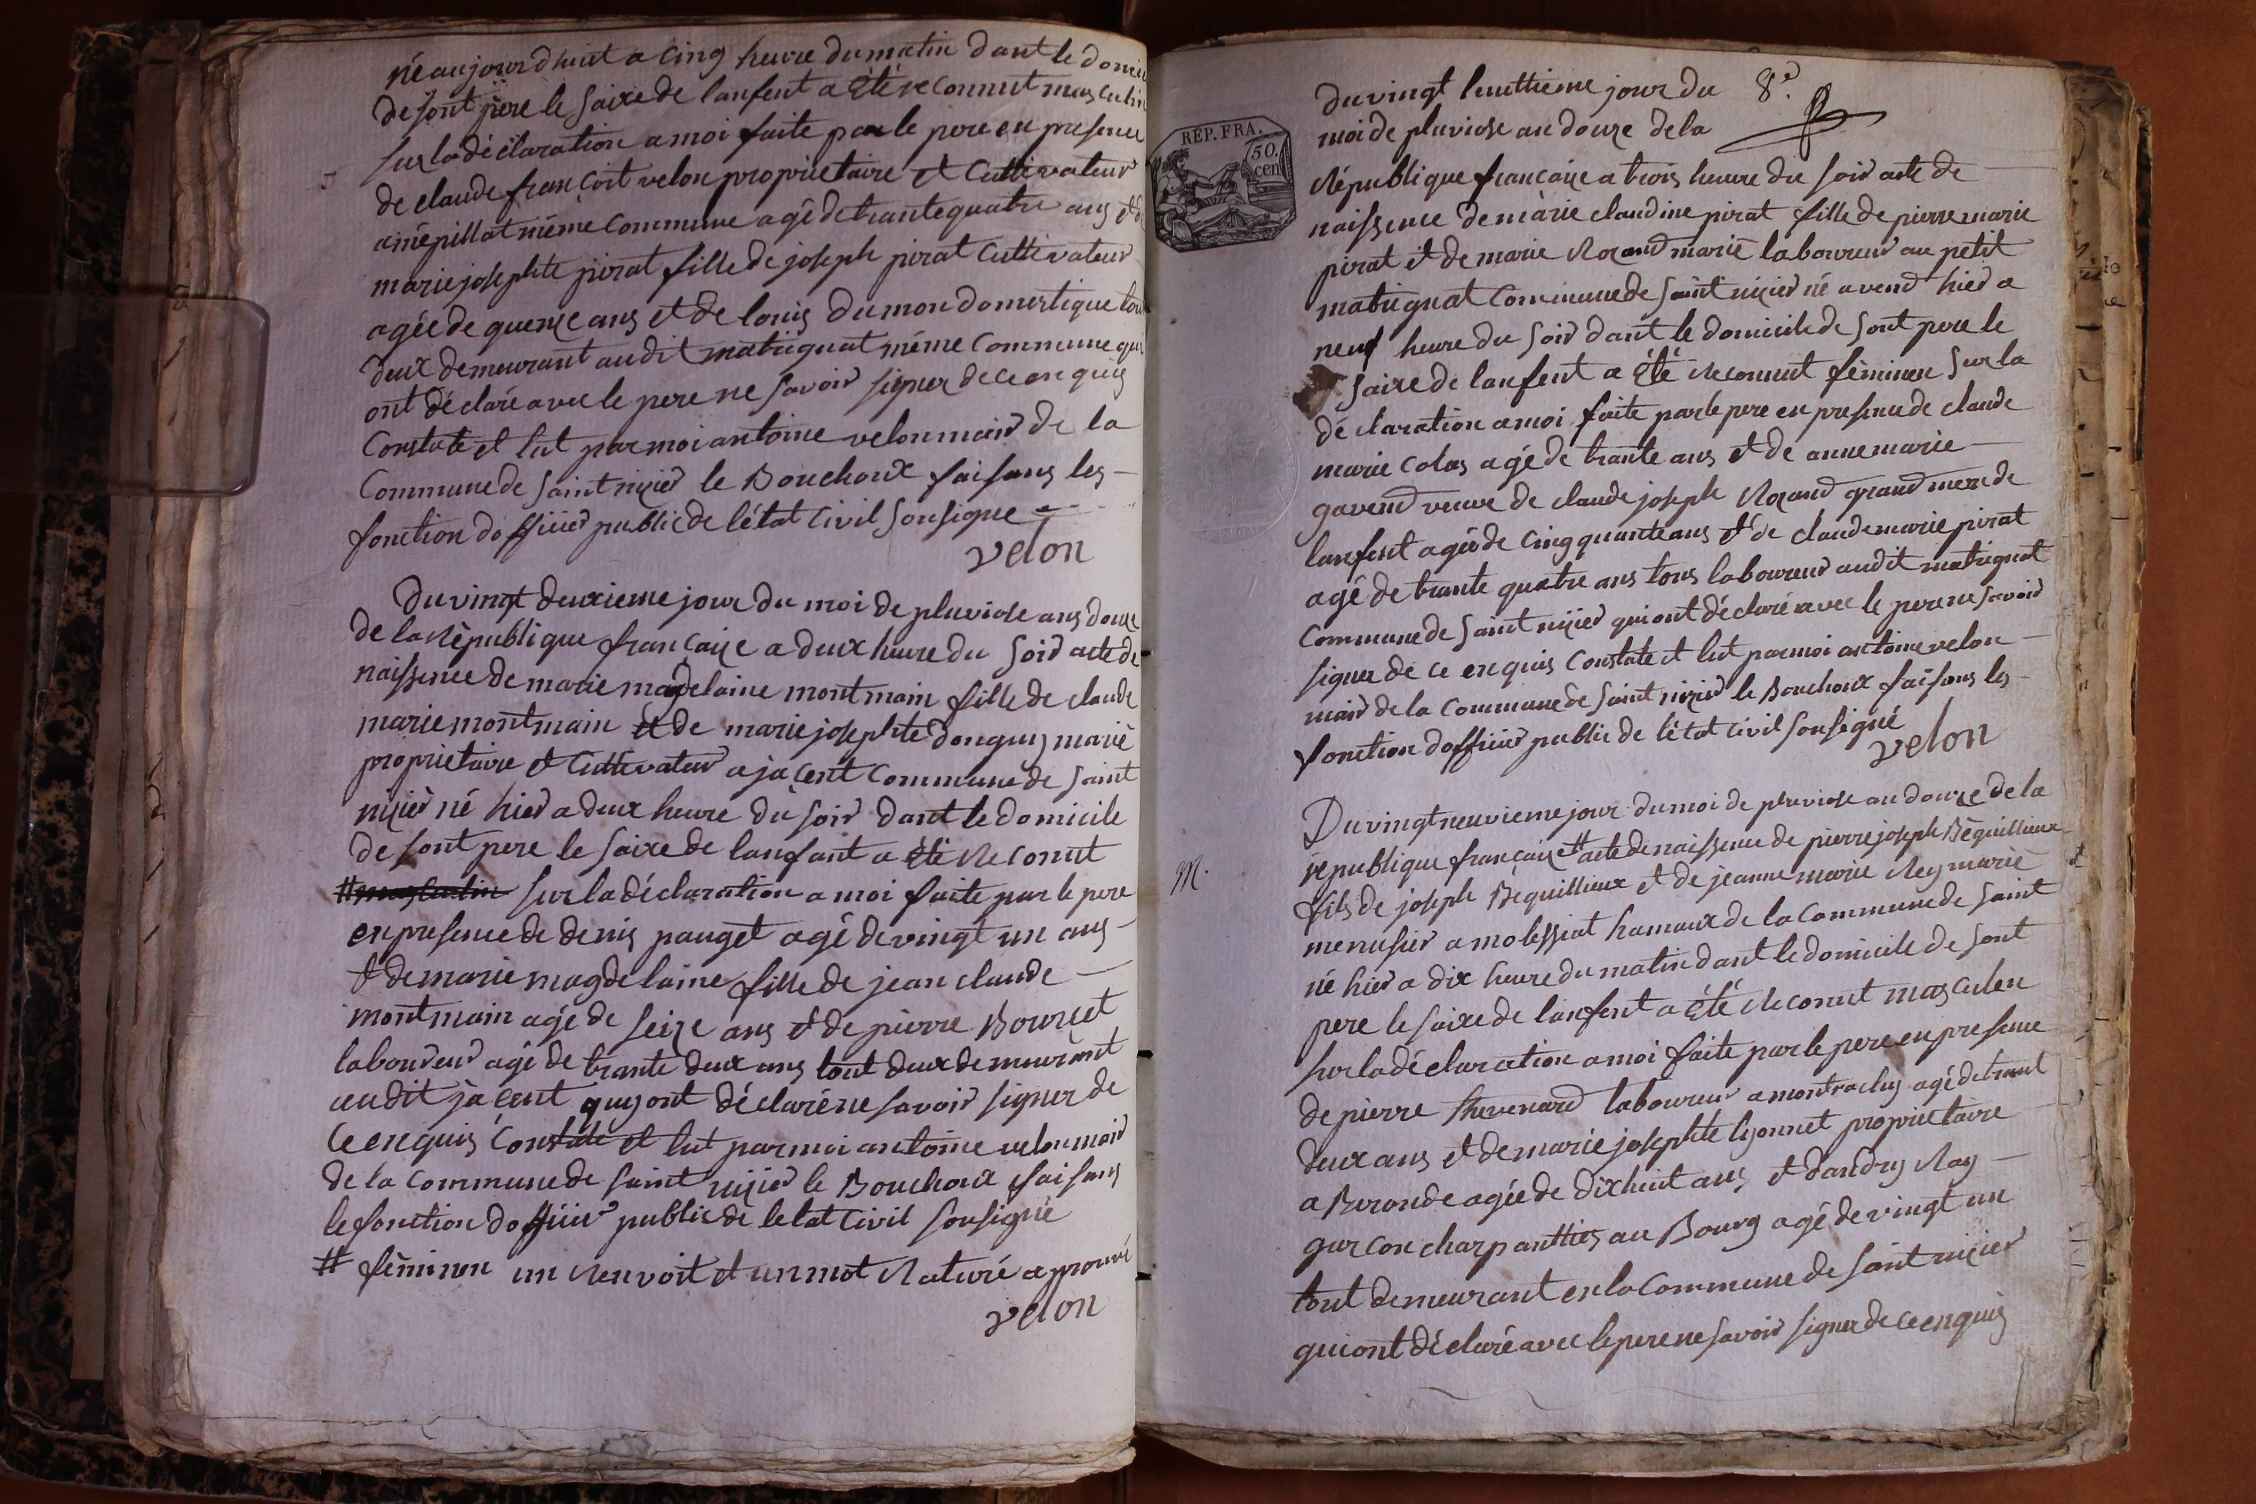 né aujourdhuit a cinq heure du matin dant le domici
de sont pere le saixe de lanfent a été reconnut masculin
sur la déclaration a moi faite par le pere en presence
de claude francoit velon propriétaire et Cultivateur
a népillat méme commune agé de trante quatre ans et d
marie josephte pirat fille de joseph pirat Cultivateur
agée de quenze ans et de louis dumon domestique tou
deux demeurant audit matrignat méme Commune qui
ont déclaré avec le pere ne savoir signer de ce enquis
Constate et lut par moi antoine velon mair de la
Commune de saint nizier le Bouchoux faisans les
fonction doffiier public de létat Civil sousigne
velon
Du vingt deuxieme jour du moi de pluviose ans douze
de la République francaize a deux heure du soir acte de
naissence de marie magdelaine montmain fille de claude
marie montmain et de marie josephte donguy marié
propriétaire et Cultivateur a jacent Commune de saint
nizier né hier a deux heure du soir dant le domicile
de sont pere le saixe de lanfant a été Reconut
# masculin sur la déclaration a moi faite par le pere
en presence de denis pauget agé de vingt un ans
et de marie magdelaine fille de jean claude
montmain agé de seize ans et de pierre Bourcet
laboureur agé de trante deux ans tout deux demeurant
audit jacent quy ont déclaré ne savoir signer de
Ce enquis Constate et lut par moi antoine velon mair
de la Commune de saint nizier le Bouchoux faisans
le fonction doffiier public de letat Civil sousigné
# féminen un Renvoit et un mot Raturé approuvé
velon
Du vingt huittieme jour du 8e
moi de pluviose an douze de la
REP. FRA.
50.
cen
République francaize a trois heure du soir acte de
naissence de marie claudine pirat fille de pierre marie
pirat et de marie Rozand marié laboureur au petit
matrignat Commune de saint nizier né avend hier a
neuf heure du soir dant le domicile de sont pere le
saixe de lanfent a été Reconnut féminen sur la
déclaration a moi faite par le pere en presence de claude
marie colas agé de trante ans et de anne marie
gavend veuve de claude joseph Rozand grand mere de
lanfent agée de cinq quante ans et de claude marie pirat
agé de trante quatre ans tous laboureur audit matrignat
Commune de saint nizier qui ont déclaré avec le pere ne savoir
signer de ce enquis Constate et lut par moi antoine velon
mair de la Commune de saint nizier le Bouchoux faisans les
fonction doffiier public de létat Civil sousigné
velon
Du vingt neuvieme jour du moi de pluviose an douze de la
republique francaize # acte de naissence de pierre joseph Béquillieux
M.
fils de joseph Béquillieux et de jeanne marie Rey marié
menusier a molessiat hamaux de la Commune de saint
né hier a dix heure du matin dant le domicile de sont
pere le saixe de lanfent a été Reconut masculen
sur la déclaration a moi faite par le pere en presence
de pierre thevenard laboureur a montracluy agé de trant
deux ans et de marie josephte lyonnet propriétaire
a Beronde agée de dix huit ans et dandry Ray
garcon charpanttier au Bourg agé de vingt un
tout demeurant en la Commune de saint nizier
qui ont déclaré avec le pere ne savoir signer de ce enquis